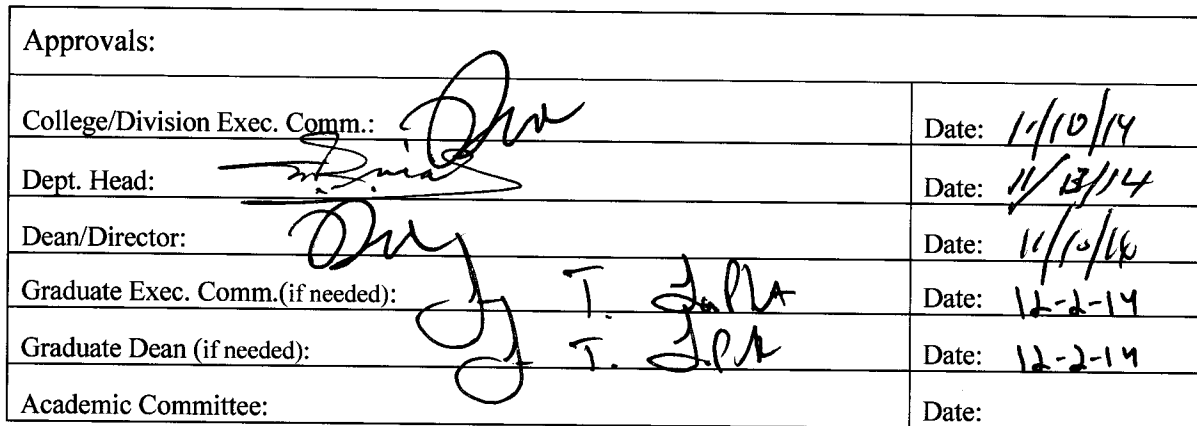 Approvals:
College/Division Exec. Comm.: Date: 11/10/14
Dept. Head: Date: 11/13/14
Dean/Director: Date:
Graduate Exec. Comm.(if needed): Date: 12-2-14
Graduate Dean (if needed): Date: 12-2-14
Academic Committee: Date: